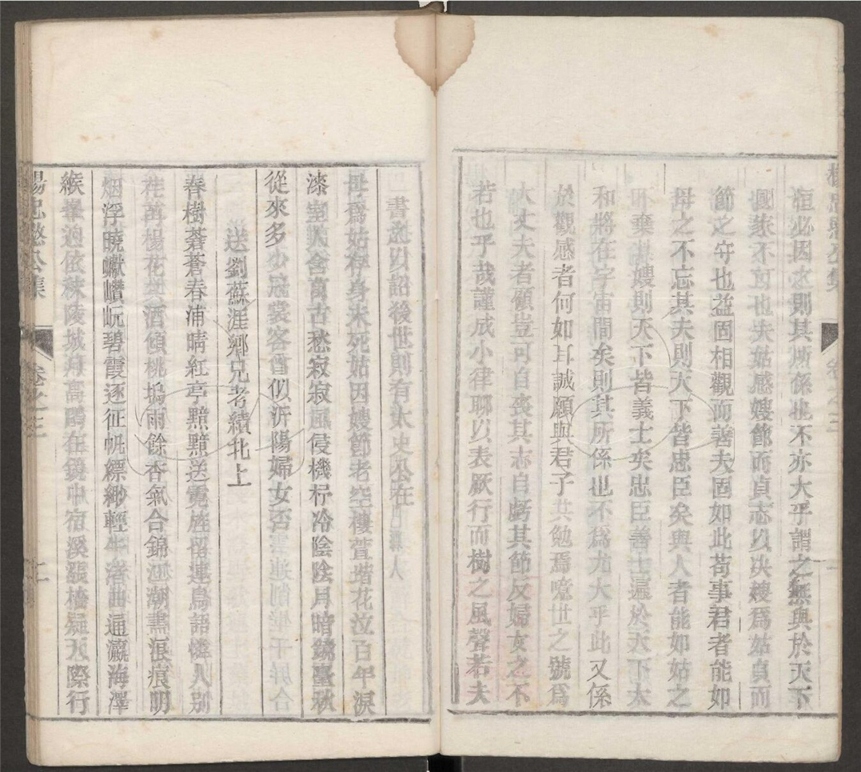 恒必因之則其所係也不亦大乎謂之無與於天下
國家不可也夫姑感嫂節而貞志以决嫂爲姑貞而
節之守也益固相觀而善夫固如此苟事君者能如
母之不忘其夫則天下皆忠臣矣與人者能如姑之
不棄嫂則天下皆義士矣忠臣善士遍於天下太
和將在宇宙間矣則其所係也不爲尤大乎此又係
於觀感者何如耳誠願與君子共勉焉噫世之號爲
大丈夫者顧豈可自喪其志自虧其節反婦女之不
若也乎哉謹成小律聊以表厥行而樹之風聲若夫
書之以詔後世則有太史公在
母爲姑存身未死姑因嫂節老空樓萱堦花泣百年淚
漆室人含萬古愁寂寂風侵機杼冷陰陰月暗鏡臺秋
從來多少冠裳客得似沂陽婦女否
送劉蘇涯鄉兄考績北上
春樹蒼蒼春浦晴紅亭黯黯送雲旌留連鳥語憐人別
花萬楊花酒傾桃塢雨餘香氣合錦江潮畵漲痕明
烟浮曉巘巑岏碧霞逐征帆縹緲輕牛渚曲通瀛海澤
緱峯逈依秣陵城月高鷗在鏡中宿溪漲橋疑天際行
楊忠愍公集
卷之三